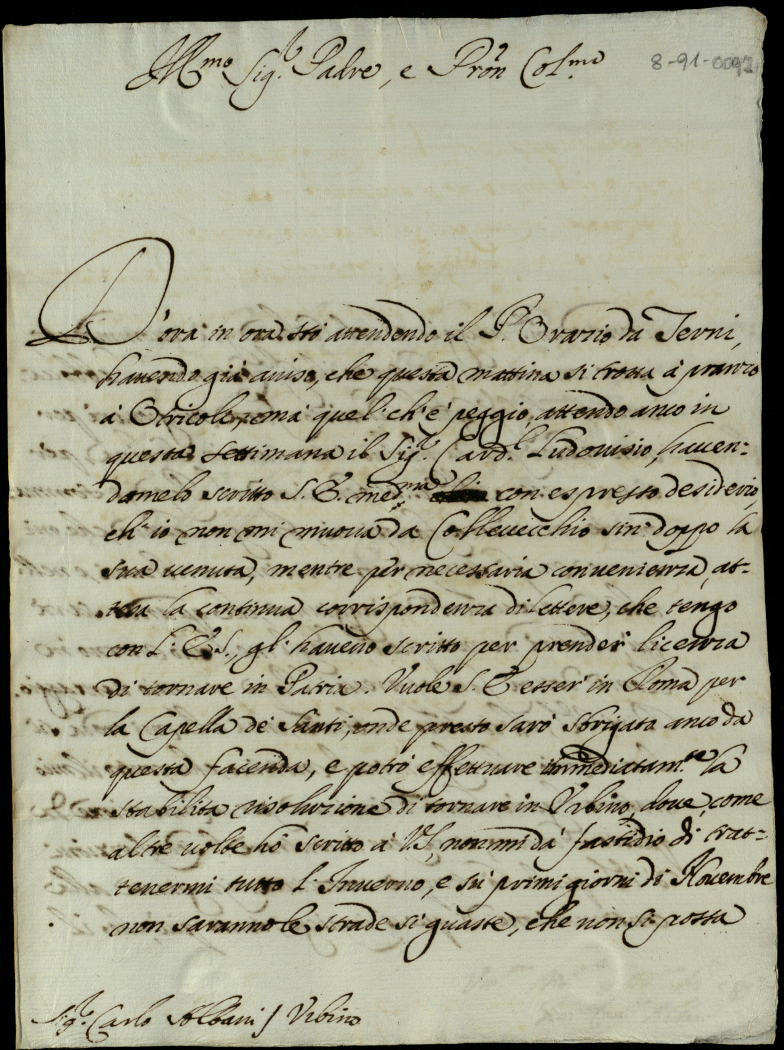 Ill.mo Sig.r Padre, e Pron Col.mo
8-91-0092
D'ora in ora stò attendendo il P. Orazio da Terni,
havendo già aviso, che questa mattina si trova à pranzo
à Otricoli; mà quel ch'è peggio, attendo anco in
questa settimana il Sig.r Card.l Ludovisio, haven-
domelo scritto S. E. med.ma con espresso desiderio,
ch'io non mi muova da Collevecchio sin doppo la
sua venuta, mentre per necessaria convenienza, at-
tesa la continua corrispondenza di lettere, che tengo
con L'E. S., gl'havevo scritto per prender licenza
di tornare in Patria. Vuole S. E. esser in Roma per
la Capella de Santi, onde presto sarò sbrigato anco da
questa facenda, e potrò effettuare immediatam.te la
stabilita risoluzione di tornare in Urbino, dove, come
altre volte hò scritto à V.S., non mi dà fastidio di trat-
tenermi tutto l'Inverno, e sù primi giorni di Novembre
non saranno le strade sì guaste, che non si possa
Sig.r Carlo Albani / Urbino